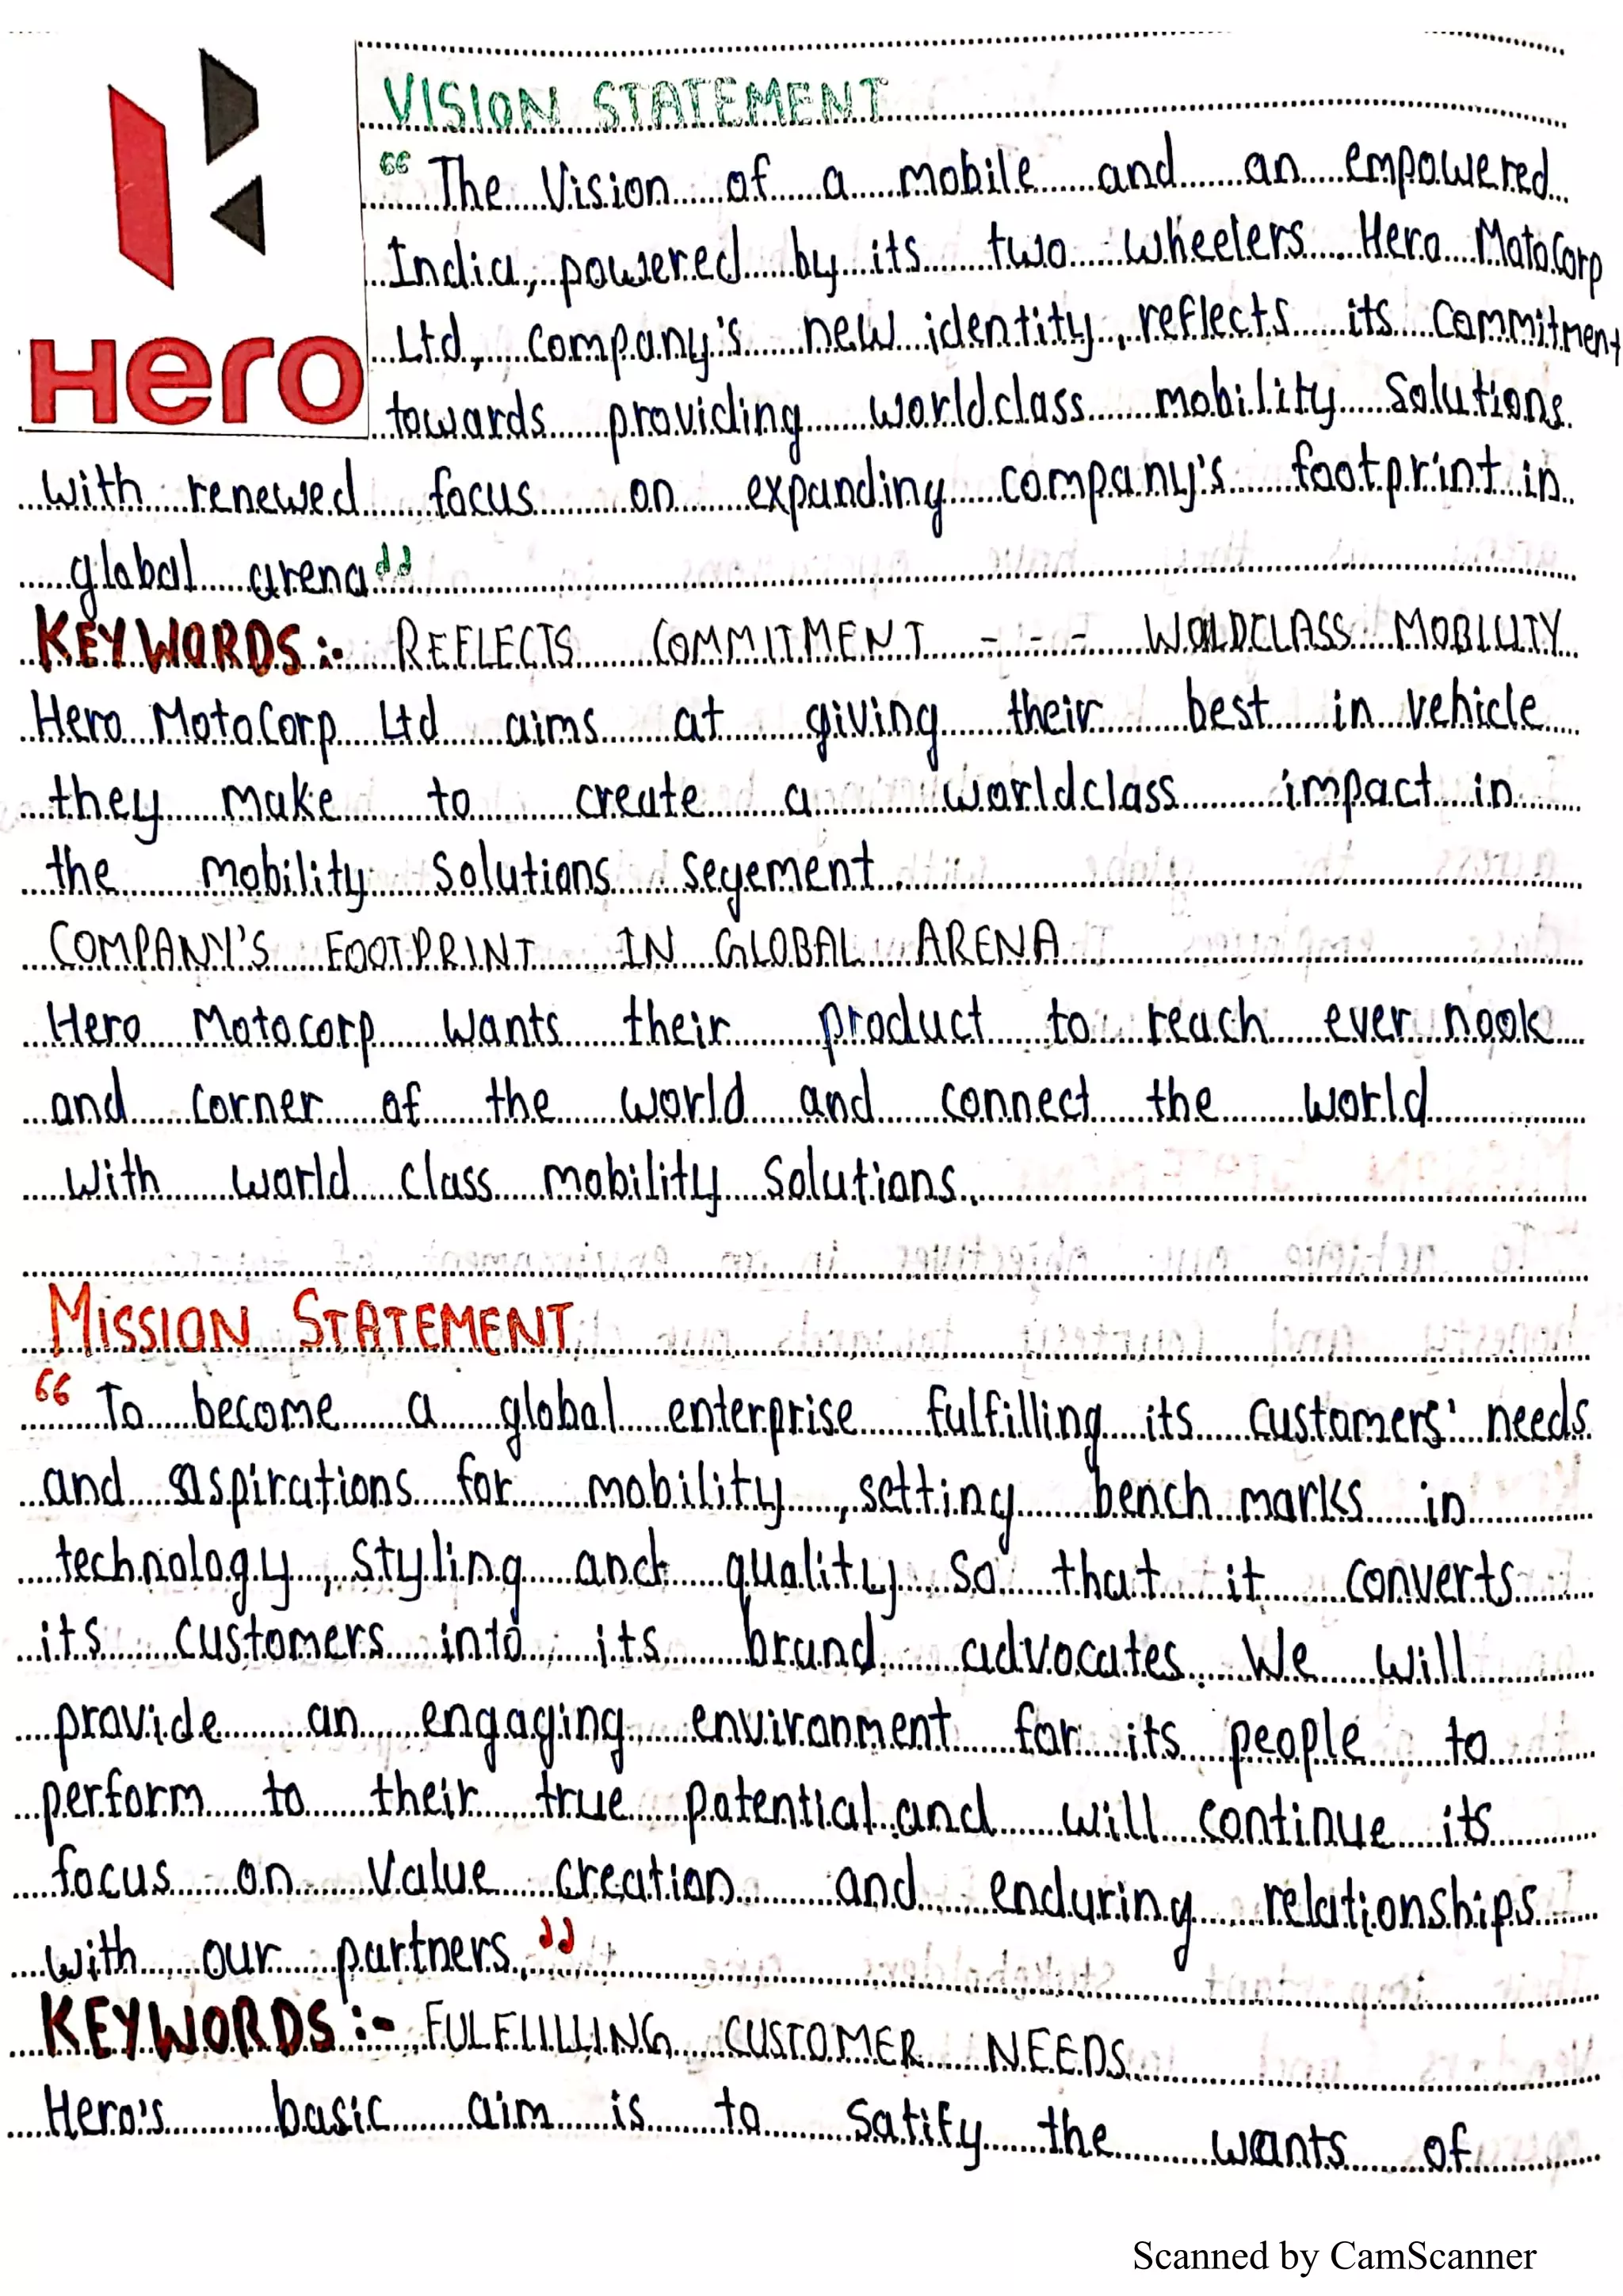 VISION STATEMENT
“The Vision of a mobile and an empowered
India, powered by its two wheelers Hero MotoCorp
Ltd, Company's new identity, reflects its Commitment
Hero
towards providing worldclass mobility Solutions
with renewed focus on expanding company's footprint in
global arena”
KEYWORDS:- REFLECTS COMMITMENT - - - WOLDCLASS MOBILITY
Hero MotoCorp Ltd aims at giving their best in vehicle
they make to create a worldclass impact in
the mobility Solutions segement.
COMPANY'S FOOTPRINT IN GLOBAL ARENA
Hero Motocorp wants their product to reach ever nook
and corner of the world and connect the world
with world class mobility Solutions.
MISSION STATEMENT
“To become a global enterprise fulfilling its customers' needs
and aspirations for mobility, setting bench marks in
technology, styling and quality so that it converts
its customers into its brand advocates. We will
provide an engaging environment for its people to
perform to their true potential and will continue its
focus on value creation and enduring relationships
with our partners.”
KEYWORDS:- FULFILLING CUSTOMER NEEDS
Hero's basic aim is to satify the wants of
Scanned by CamScanner